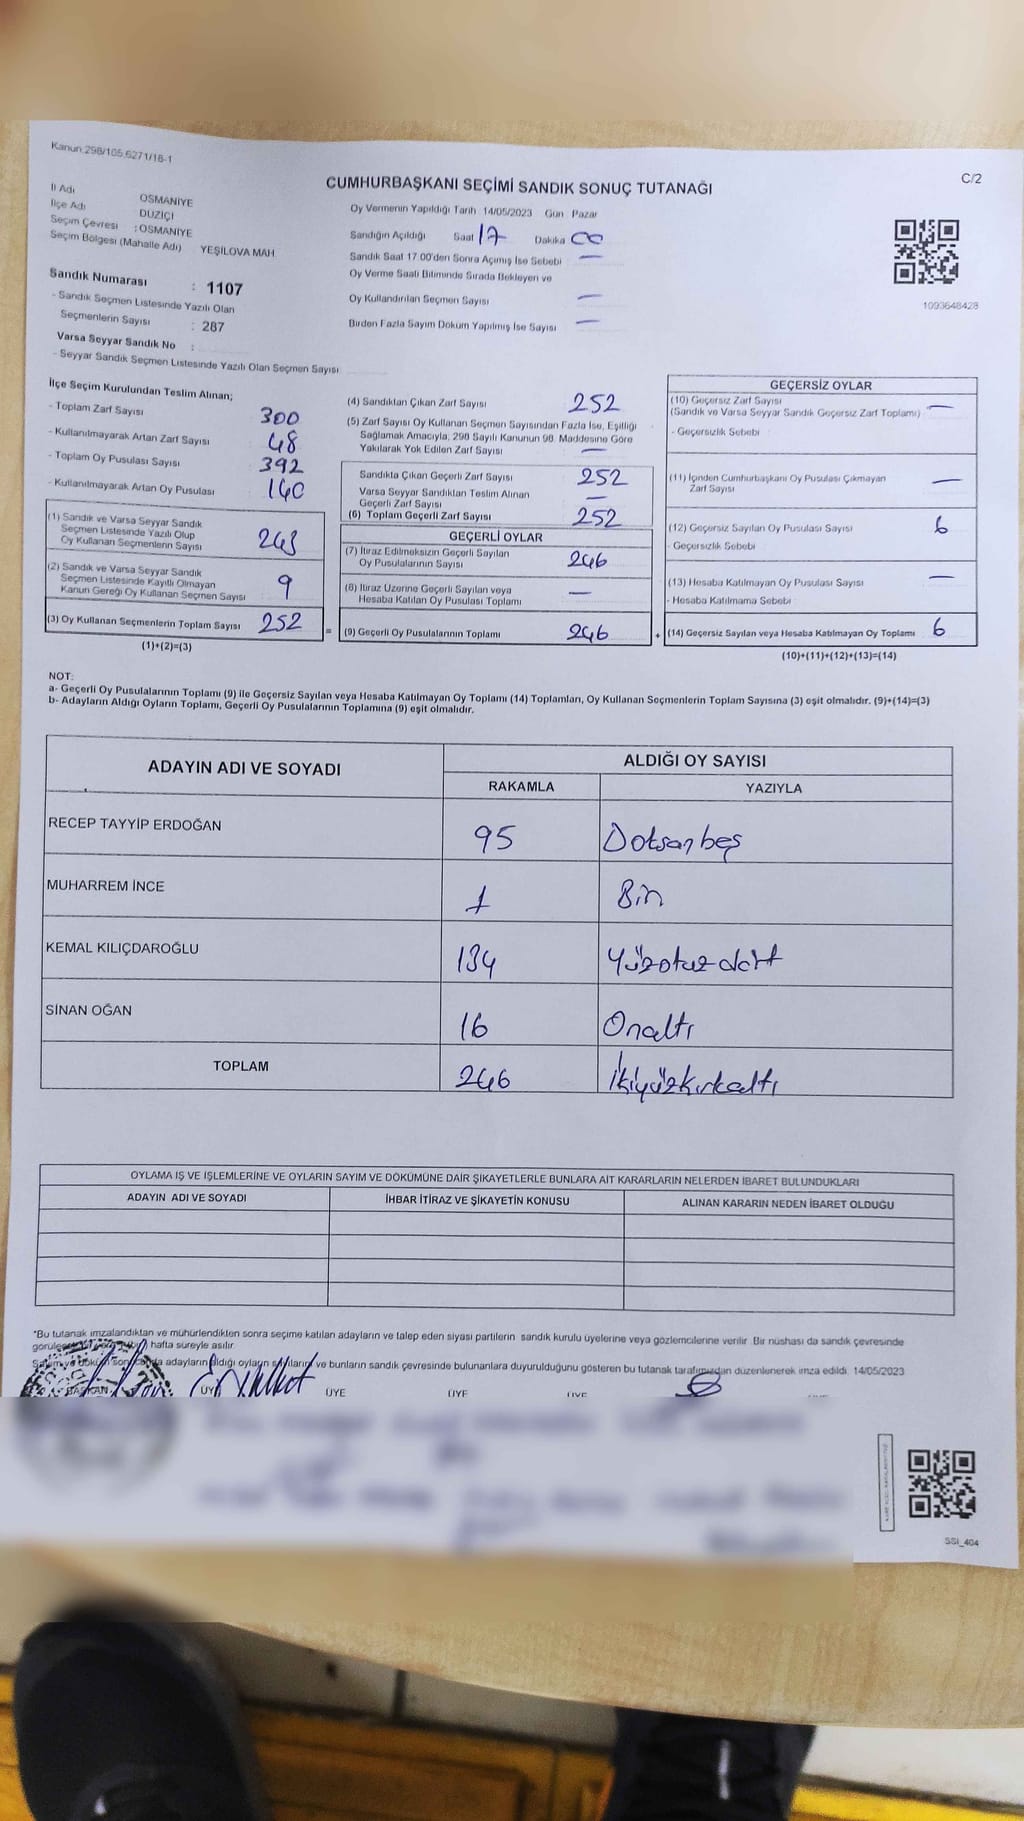 Kanun.298/105,6271/18-1
C/2
CUMHURBAŞKANI SEÇİMİ SANDIK SONUÇ TUTANAĞI
İl Adı OSMANİYE
İlçe Adı DÜZİÇİ
Seçim Çevresi : OSMANİYE
Seçim Bölgesi (Mahalle Adı) YEŞİLOVA MAH.
Sandık Numarası : 1107
- Sandık Seçmen Listesinde Yazılı Olan
Seçmenlerin Sayısı : 287
Varsa Seyyar Sandık No :
- Seyyar Sandık Seçmen Listesinde Yazılı Olan Seçmen Sayısı
Oy Vermenin Yapıldığı Tarih 14/05/2023 Gün Pazar
Sandığın Açıldığı Saat 17 Dakika 00
Sandık Saat 17.00'den Sonra Açılmış İse Sebebi —
Oy Verme Saati Bitiminde Sırada Bekleyen ve
Oy Kullandırılan Seçmen Sayısı —
Birden Fazla Sayım Döküm Yapılmış İse Sayısı —
1093648428
İlçe Seçim Kurulundan Teslim Alınan;
- Toplam Zarf Sayısı 300
- Kullanılmayarak Artan Zarf Sayısı 48
- Toplam Oy Pusulası Sayısı 392
- Kullanılmayarak Artan Oy Pusulası 140
(1) Sandık ve Varsa Seyyar Sandık
Seçmen Listesinde Yazılı Olup
Oy Kullanan Seçmenlerin Sayısı 243
(2) Sandık ve Varsa Seyyar Sandık
Seçmen Listesinde Kayıtlı Olmayan
Kanun Gereği Oy Kullanan Seçmen Sayısı 9
(3) Oy Kullanan Seçmenlerin Toplam Sayısı 252
(1)+(2)=(3)
(4) Sandıktan Çıkan Zarf Sayısı 252
(5) Zarf Sayısı Oy Kullanan Seçmen Sayısından Fazla İse, Eşitliği
Sağlamak Amacıyla, 298 Sayılı Kanunun 98. Maddesine Göre
Yakılarak Yok Edilen Zarf Sayısı —
Sandıkta Çıkan Geçerli Zarf Sayısı 252
Varsa Seyyar Sandıktan Teslim Alınan
Geçerli Zarf Sayısı —
(6) Toplam Geçerli Zarf Sayısı 252
GEÇERLİ OYLAR
(7) İtiraz Edilmeksizin Geçerli Sayılan
Oy Pusulalarının Sayısı 246
(8) İtiraz Üzerine Geçerli Sayılan veya
Hesaba Katılan Oy Pusulası Toplamı —
= (9) Geçerli Oy Pusulalarının Toplamı 246
GEÇERSİZ OYLAR
(10) Geçersiz Zarf Sayısı —
(Sandık ve Varsa Seyyar Sandık Geçersiz Zarf Toplamı)
- Geçersizlik Sebebi
(11) İçinden Cumhurbaşkanı Oy Pusulası Çıkmayan
Zarf Sayısı —
(12) Geçersiz Sayılan Oy Pusulası Sayısı 6
- Geçersizlik Sebebi
(13) Hesaba Katılmayan Oy Pusulası Sayısı —
- Hesaba Katılmama Sebebi
+ (14) Geçersiz Sayılan veya Hesaba Katılmayan Oy Toplamı 6
(10)+(11)+(12)+(13)=(14)
NOT:
a- Geçerli Oy Pusulalarının Toplamı (9) ile Geçersiz Sayılan veya Hesaba Katılmayan Oy Toplamı (14) Toplamları, Oy Kullanan Seçmenlerin Toplam Sayısına (3) eşit olmalıdır. (9)+(14)=(3)
b- Adayların Aldığı Oyların Toplamı, Geçerli Oy Pusulalarının Toplamına (9) eşit olmalıdır.
ADAYIN ADI VE SOYADI ALDIĞI OY SAYISI
RAKAMLA YAZIYLA
RECEP TAYYİP ERDOĞAN 95 Doksanbeş
MUHARREM İNCE 1 Bir
KEMAL KILIÇDAROĞLU 134 Yüzotuzdört
SİNAN OĞAN 16 Onaltı
TOPLAM 246 İkiyüzkırkaltı
OYLAMA İŞ VE İŞLEMLERİNE VE OYLARIN SAYIM VE DÖKÜMÜNE DAİR ŞİKAYETLERLE BUNLARA AİT KARARLARIN NELERDEN İBARET BULUNDUKLARI
ADAYIN ADI VE SOYADI İHBAR İTİRAZ VE ŞİKAYETİN KONUSU ALINAN KARARIN NEDEN İBARET OLDUĞU
*Bu tutanak imzalandıktan ve mühürlendikten sonra seçime katılan adayların ve talep eden siyasi partilerin sandık kurulu üyelerine veya gözlemcilerine verilir. Bir nüshası da sandık çevresinde
hafta süreyle asılır.
adayların aldığı oyların sayılarını ve bunların sandık çevresinde bulunanlara duyurulduğunu gösteren bu tutanak tarafımızdan düzenlenerek imza edildi. 14/05/2023
BAŞKAN ÜYE ÜYE ÜYE ÜYE
SSI_404